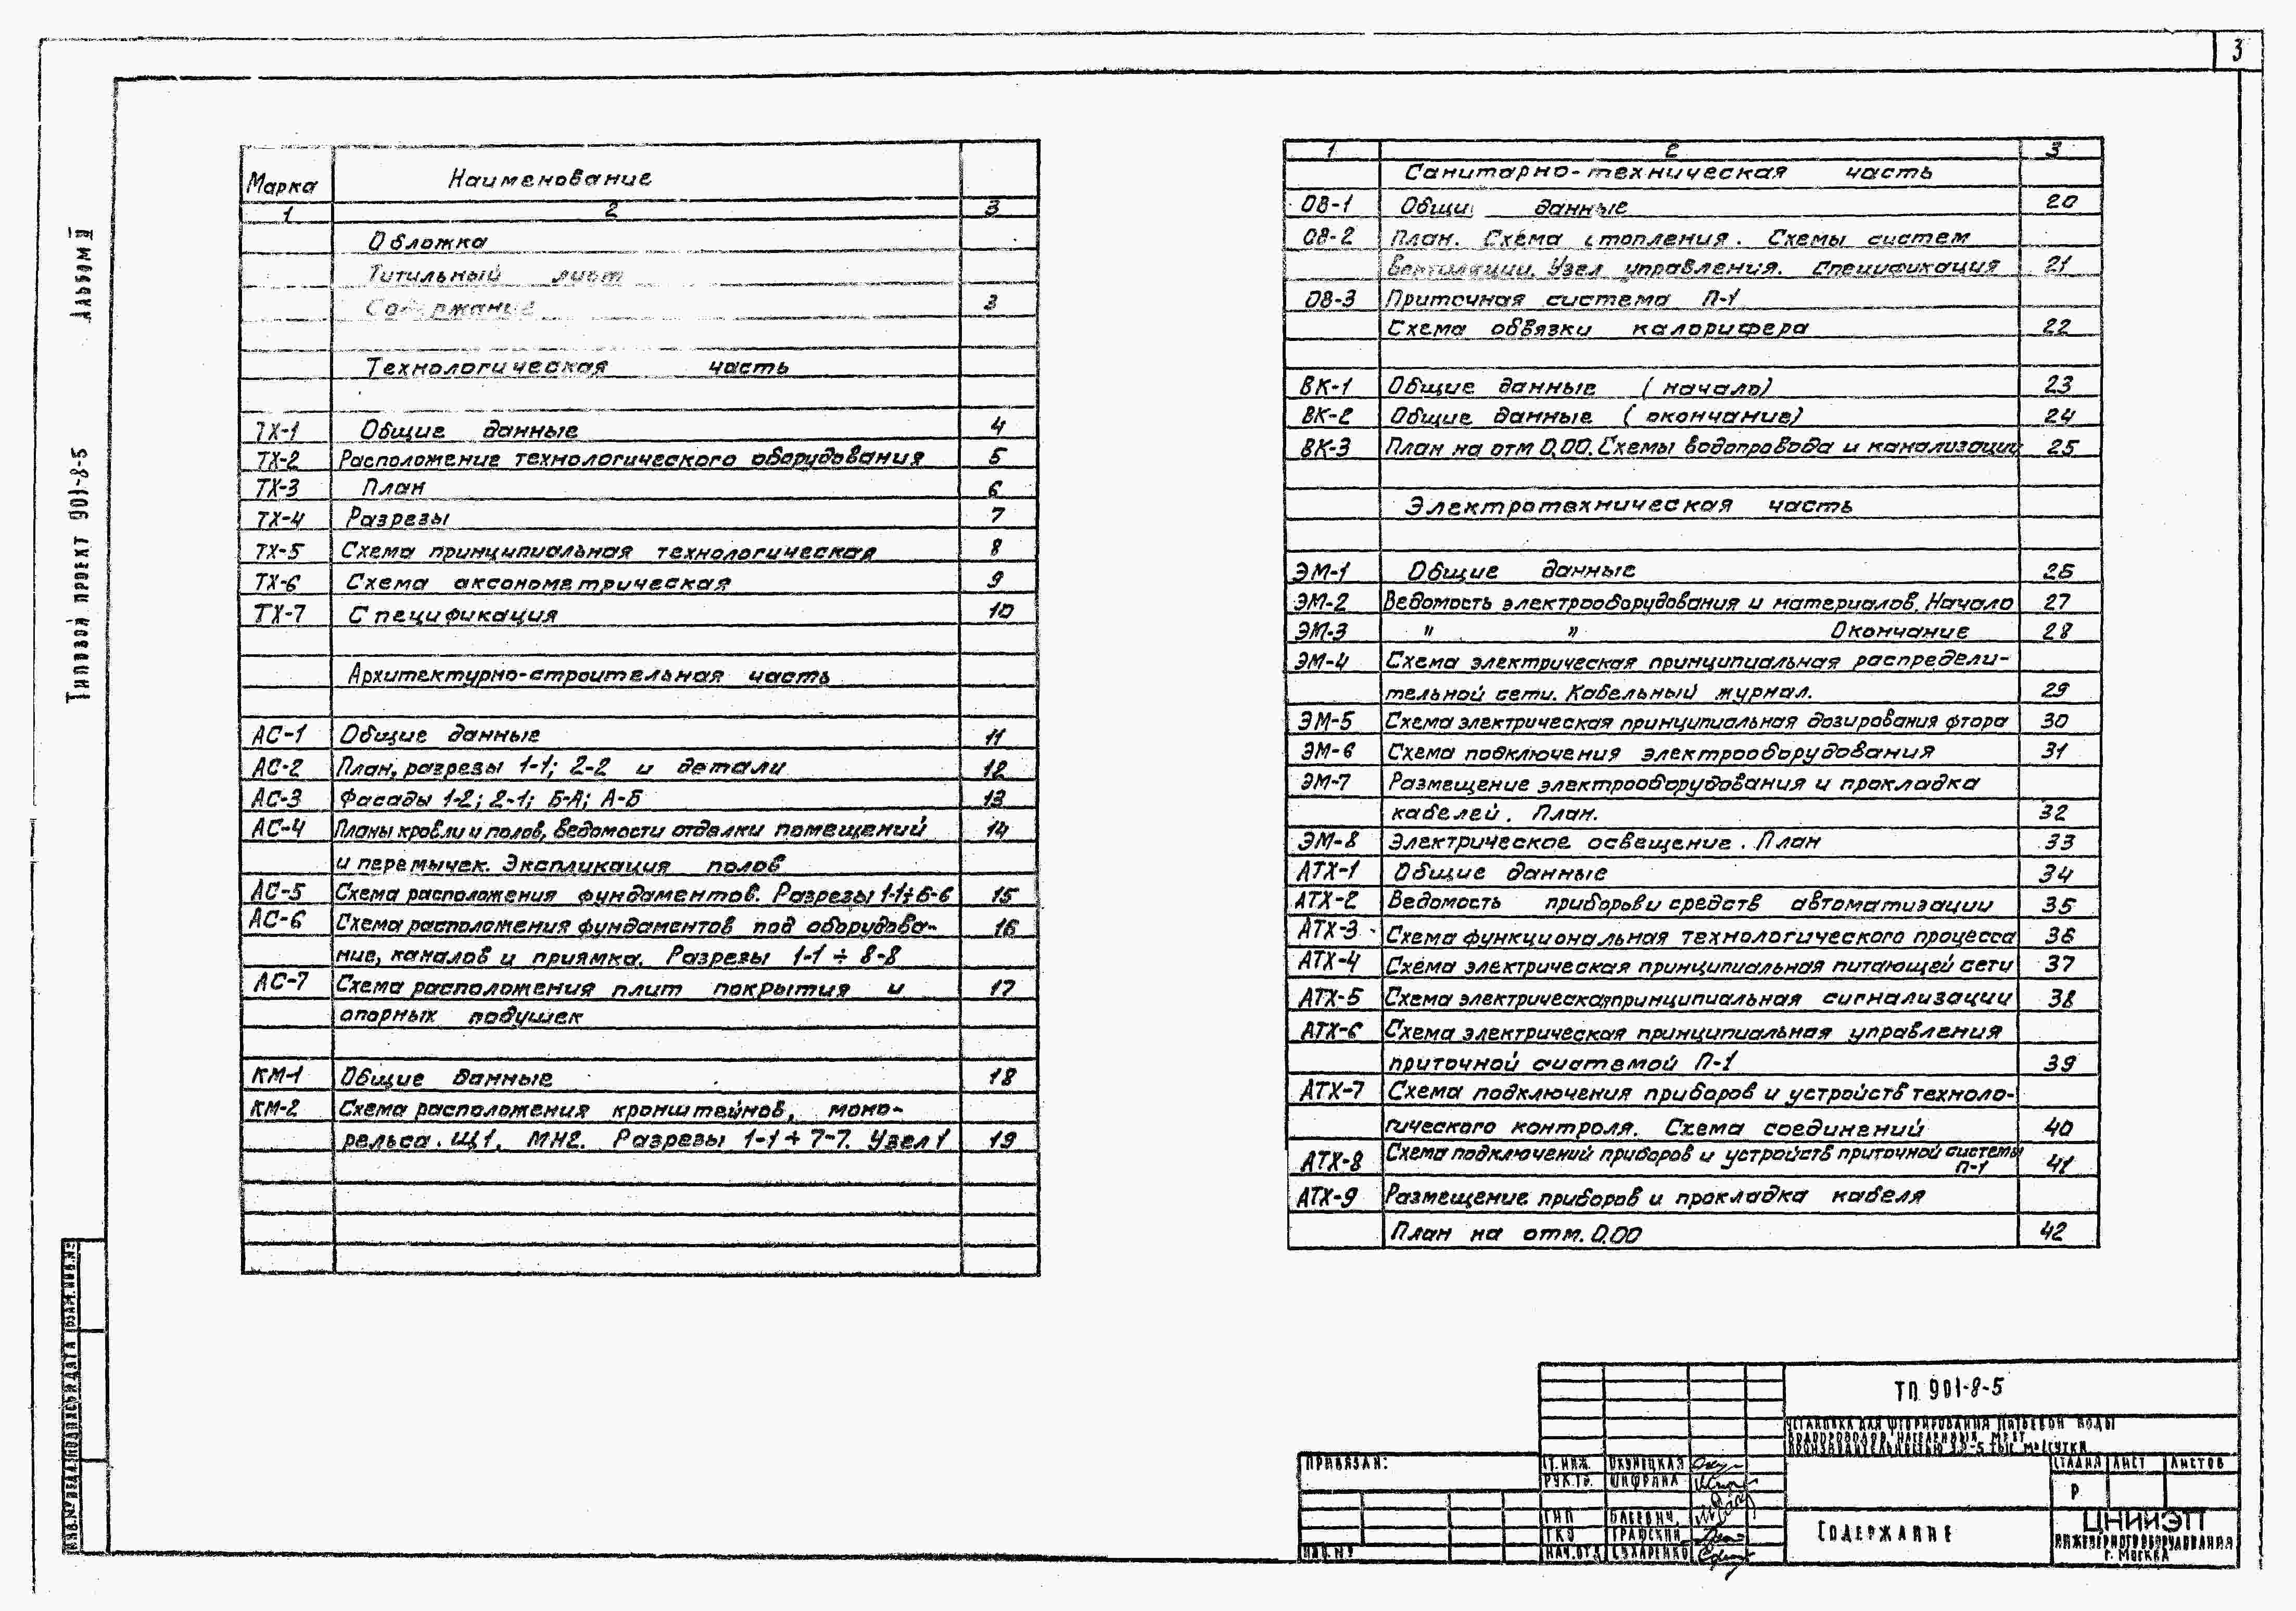 3
Альбом II
Типовой проект 901-8-5
Марка Наименование
1 2 3
Обложка
Титульный лист
Содержание 3
Технологическая часть
ТХ-1 Общие данные 4
ТХ-2 Расположение технологического оборудования 5
ТХ-3 План 6
ТХ-4 Разрезы 7
ТХ-5 Схема принципиальная технологическая 8
ТХ-6 Схема аксонометрическая 9
ТХ-7 Спецификация 10
Архитектурно-строительная часть
АС-1 Общие данные 11
АС-2 План, разрезы 1-1; 2-2 и детали 12
АС-3 Фасады 1-2; 2-1; Б-А; А-Б 13
АС-4 Планы кровли и полов, Ведомости отделки помещений 14
и перемычек. Экспликация полов
АС-5 Схема расположения фундаментов. Разрезы 1-1÷6-6 15
АС-6 Схема расположения фундаментов под оборудова- 16
ние, каналов и приямка. Разрезы 1-1 ÷ 8-8
АС-7 Схема расположения плит покрытия и 17
опорных подушек
КМ-1 Общие данные 18
КМ-2 Схема расположения кронштейнов, моно-
рельса. Щ1, МН2. Разрезы 1-1 ÷ 7-7. Узел 1 19
1 2 3
Санитарно-техническая часть
ОВ-1 Общи данные 20
ОВ-2 План. Схема отопления. Схемы систем
вентиляции. Узел управления. Спецификация 21
ОВ-3 Приточная система П-1
Схема обвязки калорифера 22
ВК-1 Общие данные (начало) 23
ВК-2 Общие данные (окончание) 24
ВК-3 План на отм 0,00. Схемы водопровода и канализации 25
Электротехническая часть
ЭМ-1 Общие данные 26
ЭМ-2 Ведомость электрооборудования и материалов. Начало 27
ЭМ-3 " " Окончание 28
ЭМ-4 Схема электрическая принципиальная распредели-
тельной сети. Кабельный журнал. 29
ЭМ-5 Схема электрическая принципиальная дозирования фтора 30
ЭМ-6 Схема подключения электрооборудования 31
ЭМ-7 Размещение электрооборудования и прокладка
кабелей. План. 32
ЭМ-8 Электрическое освещение. План 33
АТХ-1 Общие данные 34
АТХ-2 Ведомость приборов и средств автоматизации 35
АТХ-3 Схема функциональная технологического процесса 36
АТХ-4 Схема электрическая принципиальная питающей сети 37
АТХ-5 Схема электрическая принципиальная сигнализации 38
АТХ-6 Схема электрическая принципиальная управления
приточной системой П-1 39
АТХ-7 Схема подключения приборов и устройств техноло-
гического контроля. Схема соединений 40
АТХ-8 Схема подключений приборов и устройств приточной системы П-1 41
АТХ-9 Размещение приборов и прокладка кабеля
План на отм. 0.00 42
Инв.№ подл. Подпись и дата Взам. инв.№
ТП 901-8-5
Установка для фторирования питьевой воды
водопроводов населенных мест
производительностью тыс м³/сутки
Привязан:
Инв.№
Ст.инж. Окунецкая
Рук.гр. Шифрина
ГИП
ГКО Графский
Нач.отд Сухаренко
Содержание
Стадия Лист Листов
Р
ЦНИИЭП
инженерного оборудования
г. Москва